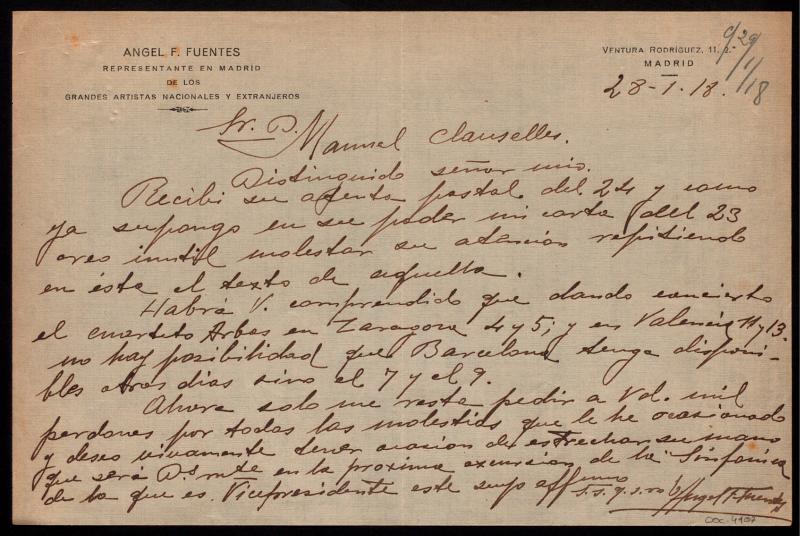 ANGEL F. FUENTES
REPRESENTANTE EN MADRID
DE LOS
GRANDES ARTISTAS NACIONALES Y EXTRANJEROS
VENTURA RODRÍGUEZ, 11, 2.º
MADRID
28-1-18.
29/1/18
Sr. D. Manuel Clausells.
Distinguido señor mio.
Recibi su atenta postal del 24 y como
ya supongo en su poder mi carta del 23
creo inutil molestar su atencion repitiendo
en ésta el texto de aquella.
Habrá V. comprendido que dando concierto
el cuarteto Arbos en Zaragoza 4 y 5; y en Valencia 11 y 13.
no hay posibilidad que Barcelona tenga disponi-
bles otros dias sino el 7 y el 9.
Ahora solo me resta pedir a Vd. mil
perdones por todas las molestias que le he ocasionado
y deseo vivamente tener ocasion de estrechar su mano
que será Ds mte en la proxima excursion de la Sinfonica
de la que es Vicepresidente este suyo affmo
s.s. q.s.m.b. Angel F. Fuentes
DOC-4407